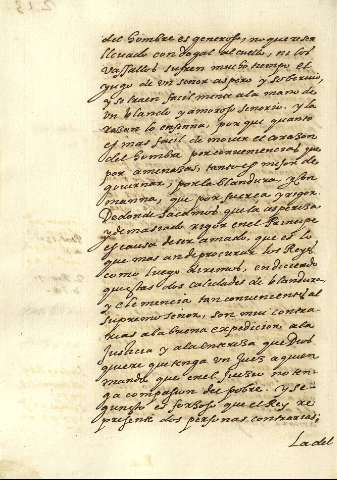 del hombre es generoso, no quere ser
llevado con dogal al cuello, ni los
Vasallos sufren mucho tiempo el
yugo de un señor aspero y soberuio,
y se traen facilmente a la mano de
un blando y amoroso señorio. y la
razon lo enseña, porque quanto
es mas facil de mouer el corazon
del hombre por conueniencias, que
por amenazas, tanto es mejor de
gouernar, por la blandura, y son
manna, que por fuerca y rigor.
Dedonde sacamos, que la aspereza
y demasiado rigor en el Principe
es causa de ser amado, que es lo
que mas an de procurar los Reyes
como luego diremos, en diciendo
questas dos calidades de blandura,
y clemencia tan conuenientes al
supremo señor, son mui contra-
rias a la buena expedicion a la
Justicia y a la entereza que Dios
quiere que tenga un juez a quien
manda que en el juzgar no ten-
ga compasion del pobre. y se-
gun esto es forzoso que el Rey re
presente dos personas contrarias;
La del